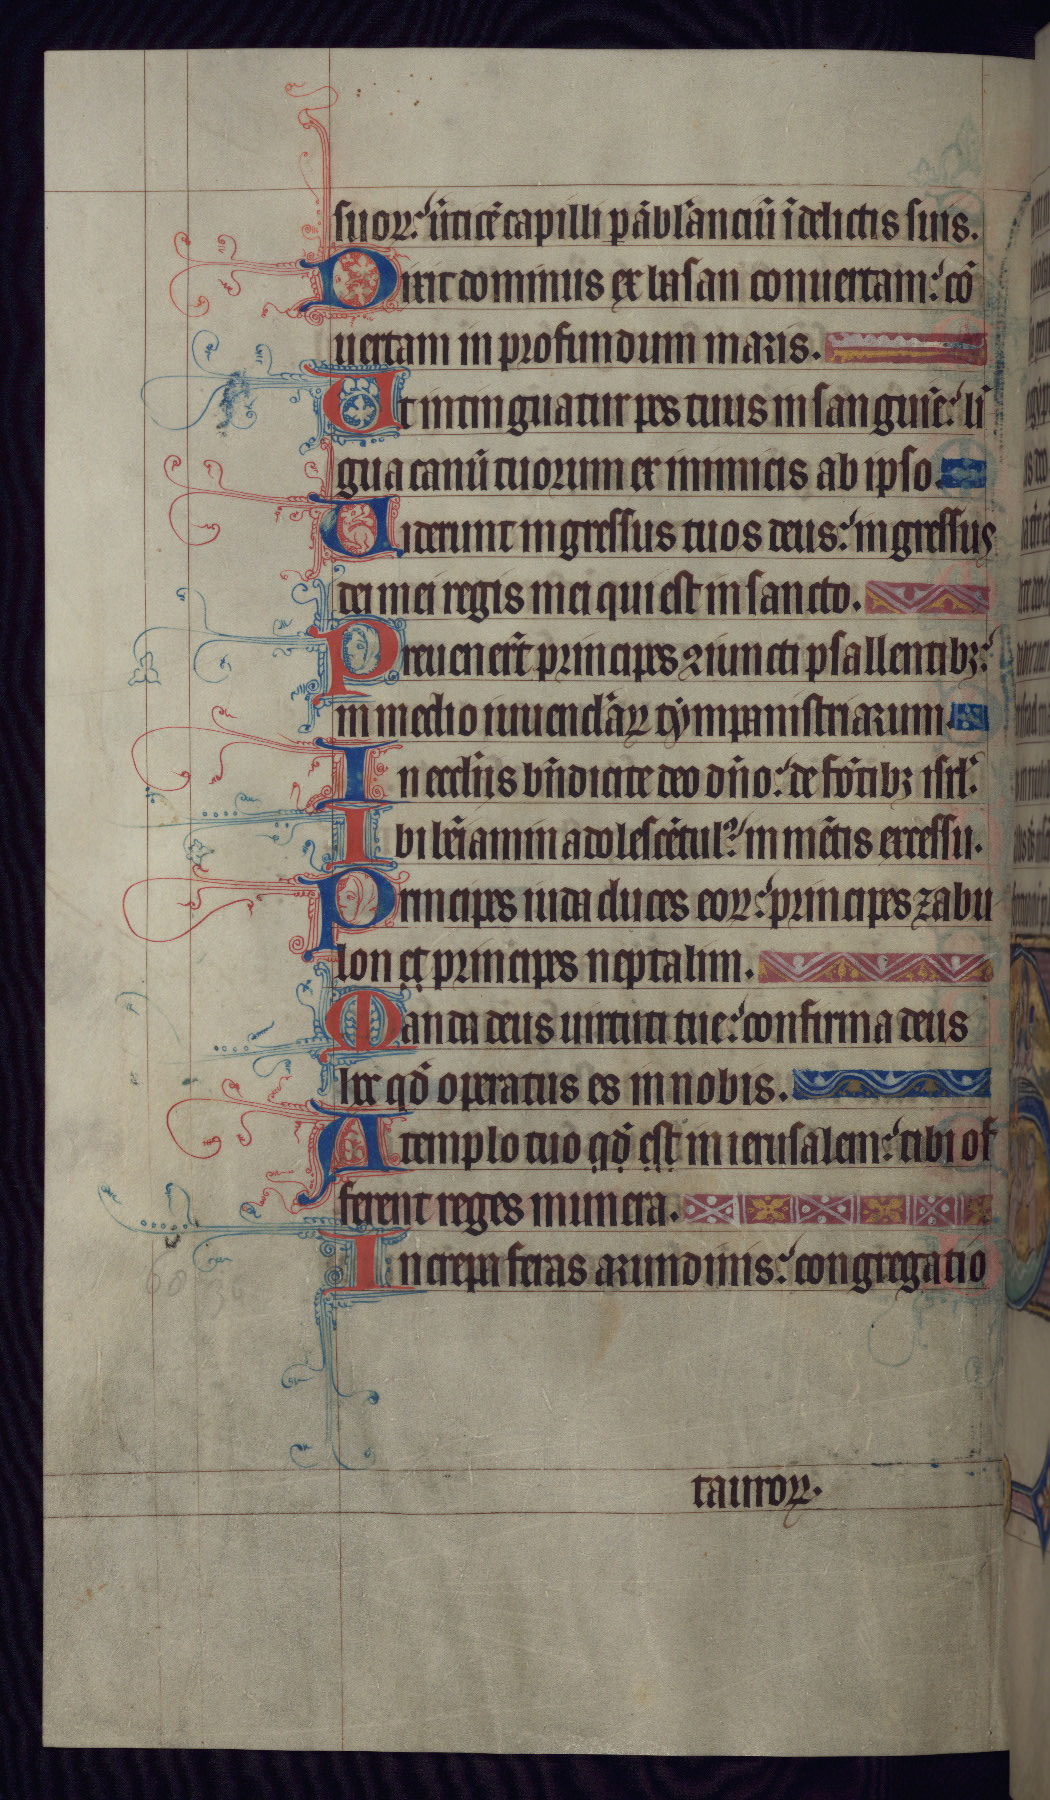 suoꝝ: ūticē capilli ꝑābulanciū ī delictis suis.
Dixit dominus ex basan conuertam: cō
uertam in profundum maris.
Ut intinguatur pes tuus in sanguīe: lī
gua canū tuorum ex inimicis ab ipso.
Uiderunt ingressus tuos deus: ingressus
dei mei regis mei qui est in sancto.
Preuenerūt principes ꝯiuncti psallentibꝫ:
in medio iuuenclāꝝ tympanistriarum.
In eccliis bn̄dicite deo dn̄o: de fōtibꝫ isrl.
Ibi beniamin adolescētulꝰ: in mētis excessu.
Principes iuda duces eoꝝ: principes zabu
lon et principes neptalim.
Manda deus uirtuti tue: confirma deus
hec qd̄ operatus es in nobis.
A templo tuo qd̄ est in ierusalem: tibi of
ferent reges munera.
Increpa feras arundinis: congregatio
tauroꝝ.